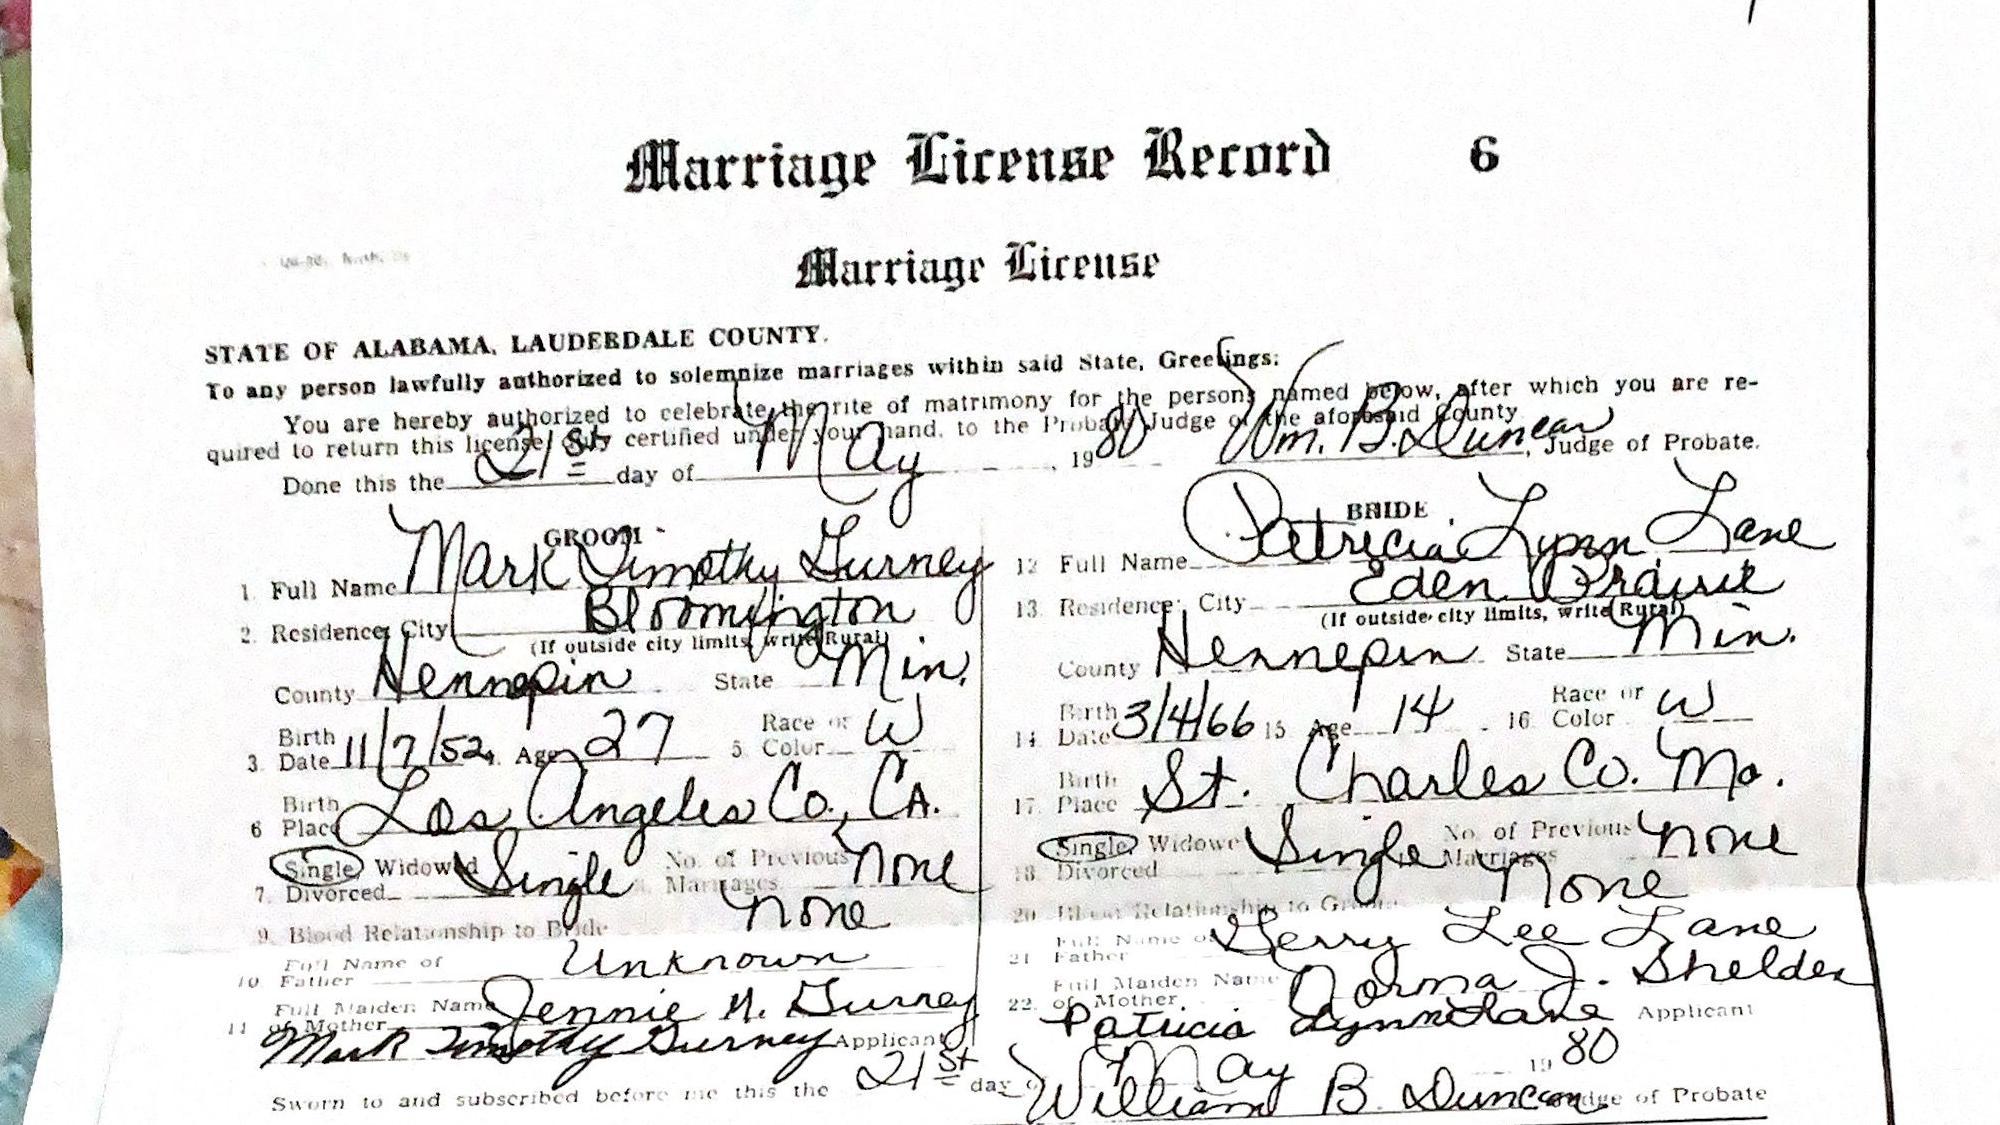 Marriage License Record 6
Marriage License
STATE OF ALABAMA, LAUDERDALE COUNTY.
To any person lawfully authorized to solemnize marriages within said State, Greetings:
You are hereby authorized to celebrate the rite of matrimony for the persons named below, after which you are re-
quired to return this license, duly certified under your hand, to the Probate Judge of the aforesaid County.
Done this the 21st day of May, 1980 Wm. B. Duncan, Judge of Probate.
GROOM
1. Full Name Mark Timothy Gurney
2. Residence: City Bloomington
(If outside city limits, write Rural)
County Hennepin State Min.
3. Birth Date 11/7/52 4. Age 27 5. Race or Color W
6 Birth Place Los Angeles Co., CA.
7. Single Widowed Divorced Single 8. No. of Previous Marriages none
9. Blood Relationship to Bride none
10 Full Name of Father Unknown
11 Full Maiden Name of Mother Jennie N. Gurney
Mark Timothy Gurney Applicant
BRIDE
12 Full Name Patricia Lynn Lane
13. Residence: City Eden Prairie
(If outside city limits, write Rural)
County Hennepin State Min.
14. Birth Date 3/4/66 15 Age 14 16. Race or Color W
17. Birth Place St. Charles Co. Mo.
18. Single Widowe Divorced Single Marriages No. of Previous none
20. Blood Relationship to Groom None
21 Full Name of Father Gerry Lee Lane
22. Full Maiden Name of Mother Norma J. Shelden
Patricia Lynn Lane Applicant
Sworn to and subscribed before me this the 21st day of May 1980
William B. Duncan Judge of Probate